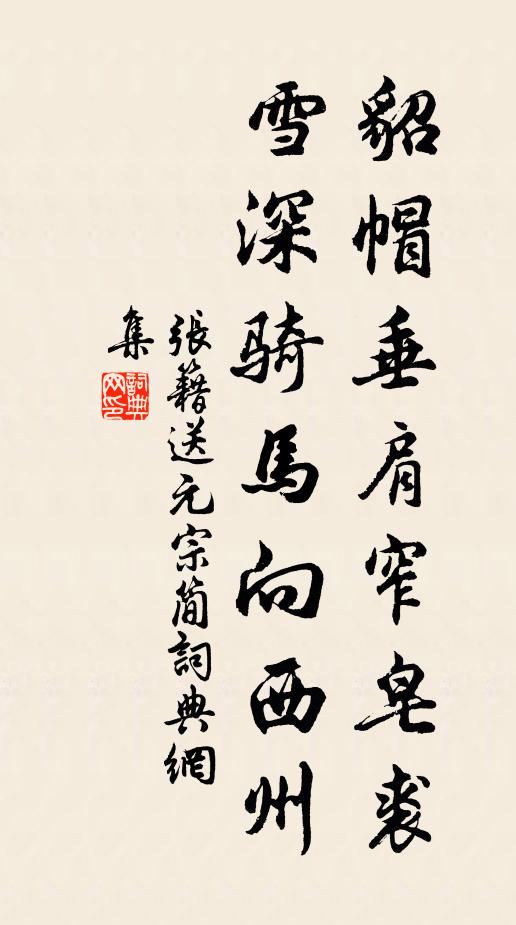 貂帽垂肩窄皂裘
雪深騎馬向西州
張籍送元宗簡詞典網
集
詞典
网印